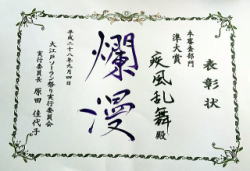 表彰状
本審査部門
準大賞
疾風乱舞殿
爛漫
平成二十八年九月四日
大江戸ソーラン祭り実行委員会
実行委員長 原田 佳代子